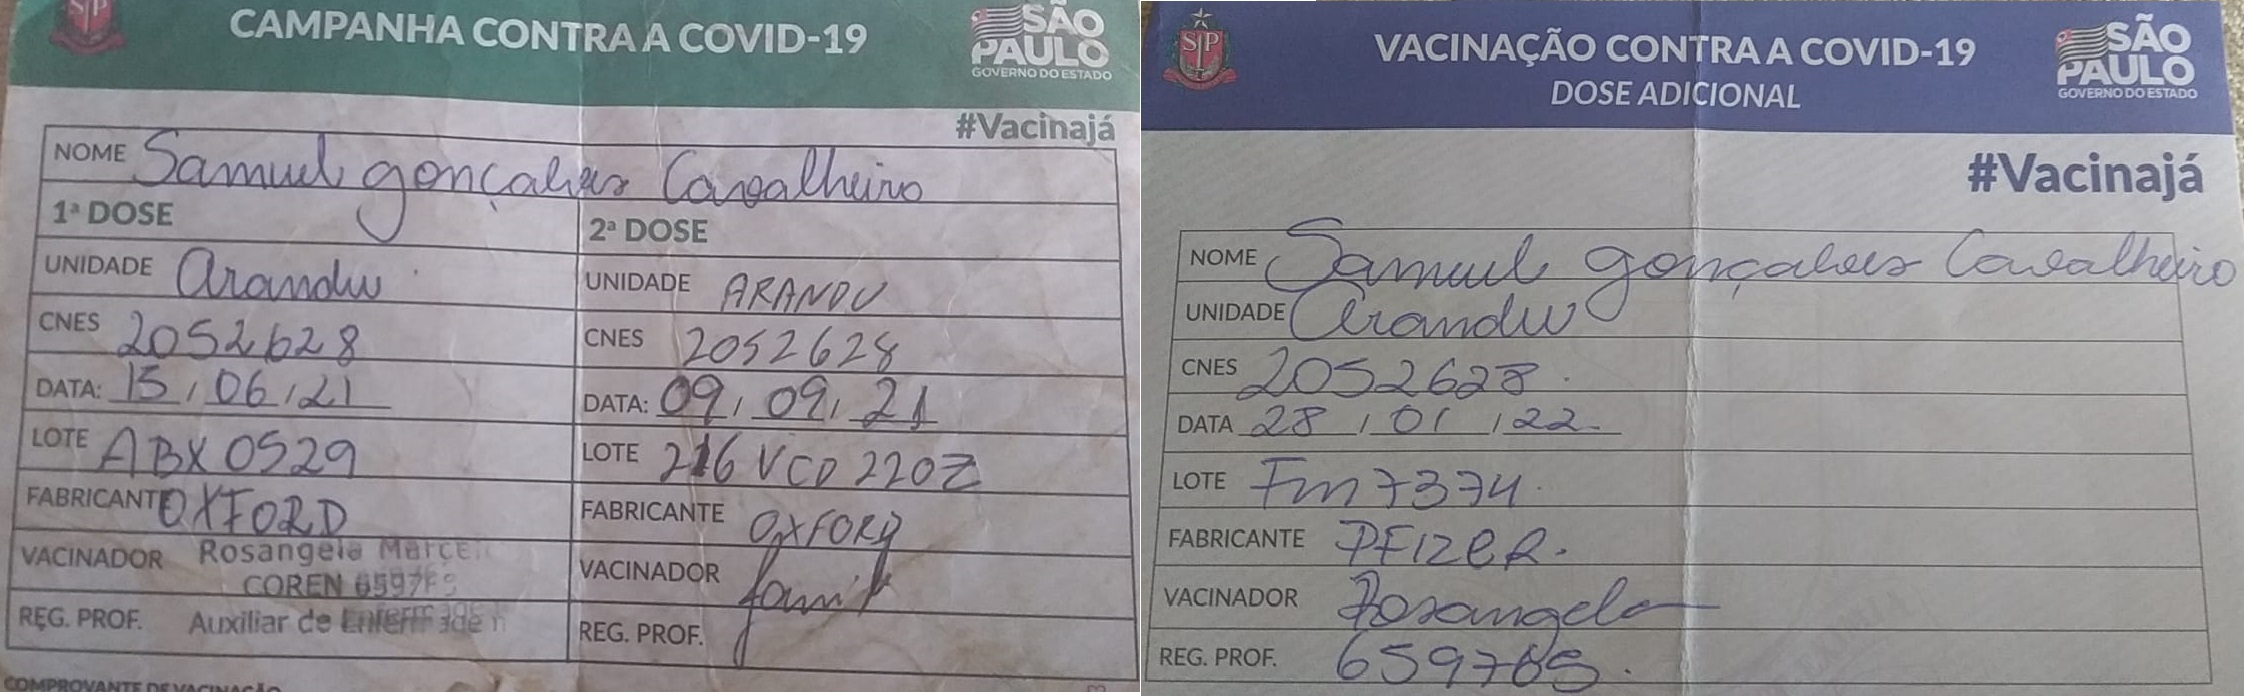 SP
CAMPANHA CONTRA A COVID-19
SÃO
PAULO
GOVERNO DO ESTADO
#Vacinajá
NOME Samuel gonçalves Cavalheiro
1ª DOSE
UNIDADE Arandu
CNES 2052628
DATA: 15/06/21
LOTE ABX0529
FABRICANTE OXFORD
VACINADOR Rosangela
COREN
REG. PROF. Auxiliar de Enfermagem
2ª DOSE
UNIDADE ARANDU
CNES 2052628
DATA: 09/09/21
LOTE 216VCD220Z
FABRICANTE OXFORD
VACINADOR
REG. PROF.
COMPROVANTE DE VACINAÇÃO
SP
VACINAÇÃO CONTRA A COVID-19
DOSE ADICIONAL
SÃO
PAULO
GOVERNO DO ESTADO
#Vacinajá
NOME Samuel gonçalves Cavalheiro
UNIDADE Arandu
CNES 2052628.
DATA 28/01/22.
LOTE Fm7374.
FABRICANTE PFIZER.
VACINADOR Rosangela
REG. PROF. 659785.